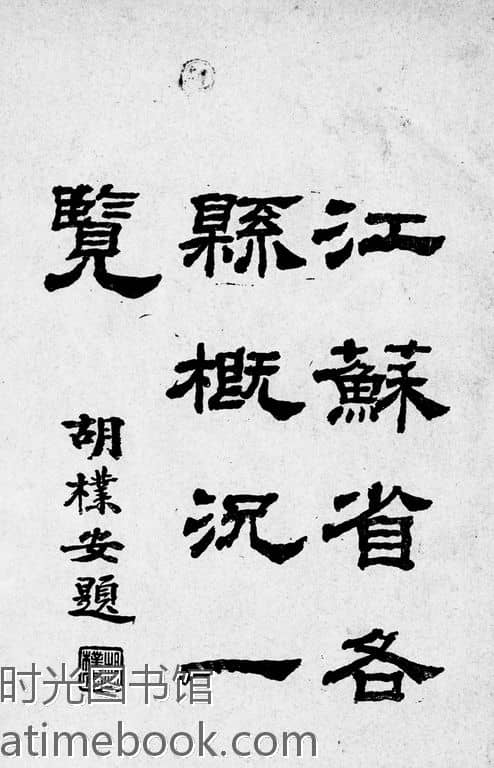 江蘇省各
縣概況一
覽
胡樸安題
时光图书馆
atimebook.com